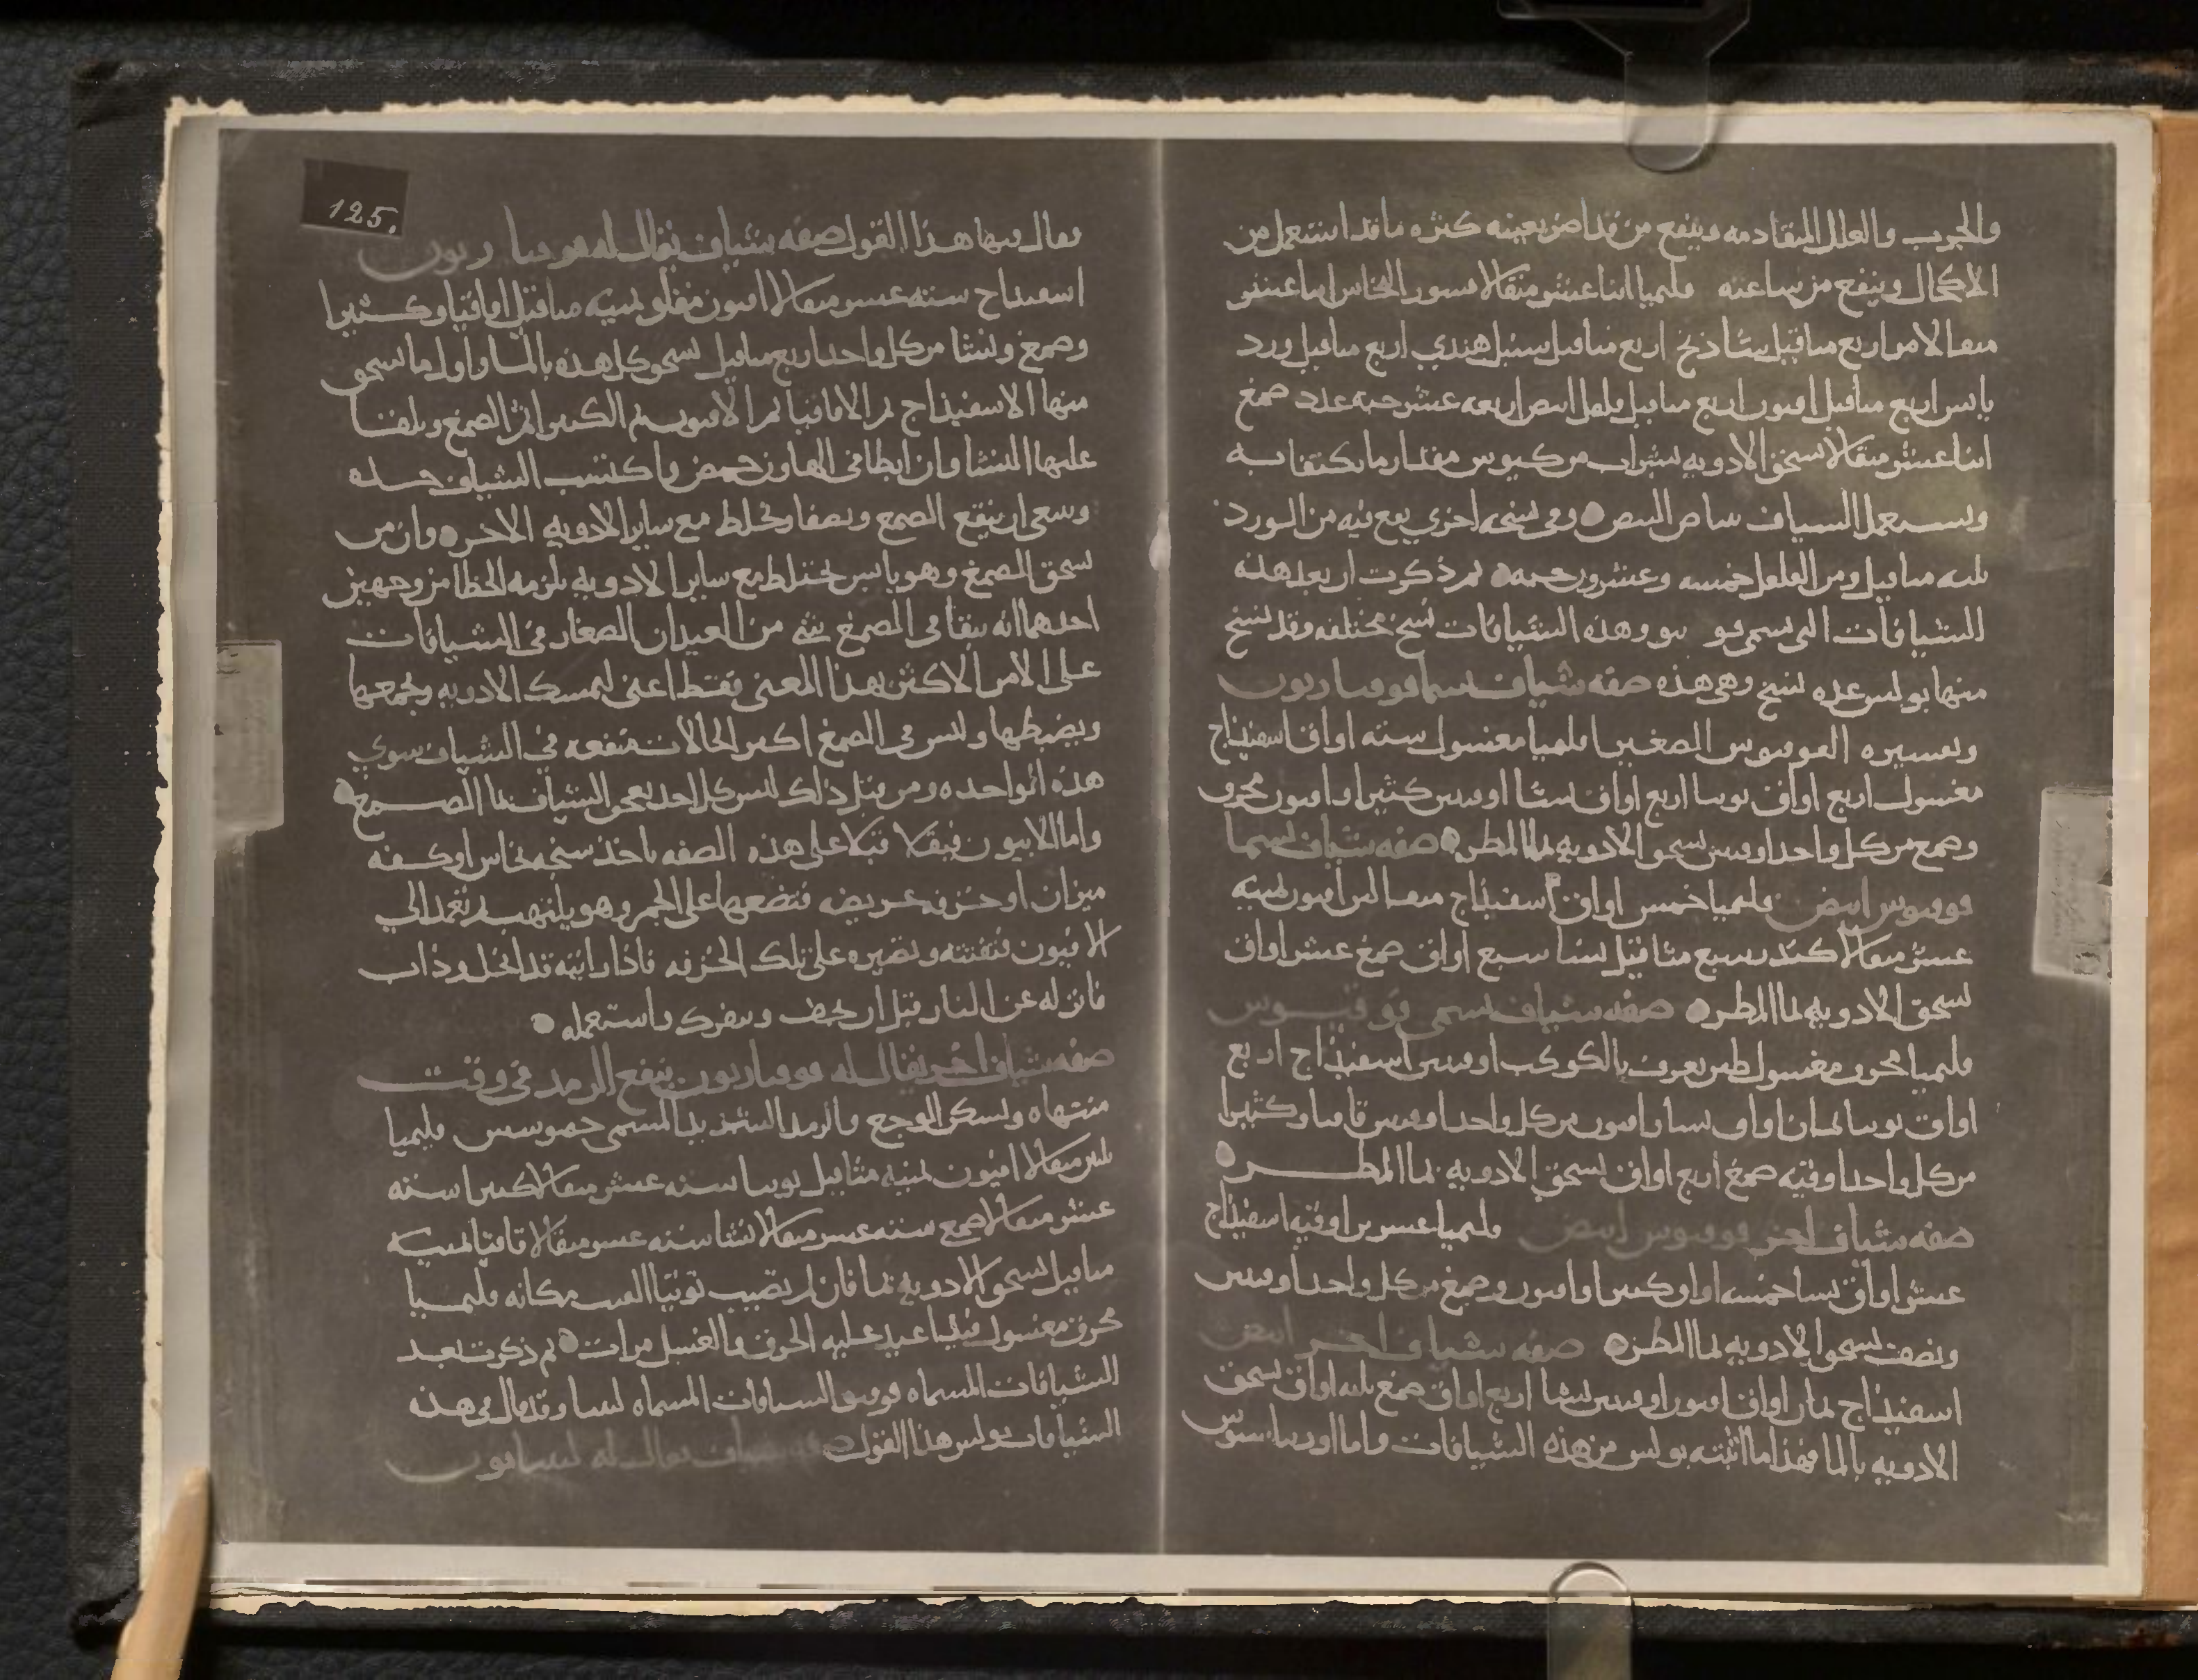 والجرب والعلل المتقادمه وينفع من قد اضر بعينه كثره ما قد استعمل من
الاكحال وينفع من ساعته قليميا اثنا عشر مثقالا قسور النحاس اثنا عشر
مثقالا مر اربع مثاقيل شاذنج اربع مثاقيل سنبل هندي اربع مثاقيل ورد
يابس اربع مثاقيل افيون اربع مثاقيل فلفل ابيض اربعه عشر حبه عدد صمغ
اثنا عشر مثقالا تسحق الادويه بشراب من كيوس مقدار ما يكتفا به
ويستعمل الشياف ببياض البيض وفي نسخه اخرى يقع فيه من الورد
ثلثه مثاقيل ومن الفلفل خمسه وعشرون حبه ثم ذكرت اربعا هذه
الشيافات التي تسمى وهذه الشيافات نسخ مختلفه وقد نسخ
منها بولس عده نسخ وهي هذه صفه شياف يسما
وتفسيره الصغير قليميا مغسول سته اواق اسفيذاج
مغسول اربع اواق توتيا اربع اواق نشا اوقيتين كثيرا وافيون محرق
وصمغ من كل واحد اوقيتين تسحق الادويه بما المطر صفه شياف يسما
ابيض قليميا خمس اواق اسفيذاج افيون ثمنيه
عشر مثقالا كندر سبع مثاقيل نشا سبع اواق صمغ عشر اواق
تسحق الادويه بما المطر صفه شياف يسمى
قليميا محرق مغسول طين يعرف بالكوكب اوقيتين اسفيذاج اربع
اواق توتيا ثمان اواق نشا وافيون من كل واحد اوقيتين وكثيرا
من كل واحد اوقيه صمغ اربع اواق تسحق الادويه بما المطر
صفه شياف اخر ابيض قليميا عشرين اوقيه اسفيذاج
عشر اواق نشا خمسه اواق كثيرا وافيون وصمغ من كل واحد اوقيتين
ونصف تسحق الادويه بما المطر صفه شياف اخر ابيض
اسفيذاج ثمان اواق افيون اوقيتين نشا اربع اواق صمغ ثلثه اواق تسحق
الادويه بالما فهذا ما اثبته بولس من هذه الشيافات واما اوريباسيوس
125.
فقال فيها هذا القول صفه شياف يقال له
اسفيذاج سته عشر مثقالا افيون مقلو ثمنيه مثاقيل اقاقيا وكثيرا
وصمغ ونشا من كل واحد اربع مثاقيل تسحق كل هذه بالما واول ما تسحق
منها الاسفيذاج ثم الاقاقيا ثم الافيون ثم الكثيرا ثم الصمغ ويلقا
عليها النشا وان ابطا في الهاون حمض واكتسب الشياف حده
وينبغي ان ينقع الصمغ ويصفا ويخلط مع ساير الادويه الاخر وان من
سحق الصمغ وهو يابس يختلط مع ساير الادويه يلزمه الخطا من وجهين
احدهما انه يبقا في الصمغ شي من العيدان الصغار في الشيافات
على الامر الاكثر بهذا المعنى فقط اعني ليمسك الادويه ويجمعها
ويضبطها وليس في الصمغ اكثر الحالات منفعه في الشياف سوى
هذه الواحده ومن قبل ذلك ليس كل احد يعجن الشياف بما الصمغ
واما الابيون فيقلا قبلا على هذه الصفه ياخذ سنجه نحاس او كفه
ميزان او خزفه عريضه فتضعها على الجمر وهو يلتهب ثم تعمد الى
الافيون فتفتته وتصيره على تلك الخزفه فاذا رايته قد انحل وذاب
فانزله عن النار قبل ان يجف ويتفرك واستعمله
صفه شياف اخر يقال له ينفع الرمد في وقت
منتهاه ويسكن الوجع والرمد الشديد المسمى قليميا
ثلثين مثقالا افيون ثمنيه مثاقيل توتيا سته عشر مثقالا كثيرا سته
عشر مثقالا صمغ سته عشر مثقالا نشا سته عشر مثقالا اقاقيا ثمنيه
مثاقيل تسحق الادويه بما فان لم تصيب توتيا الق مكانه قليميا
محرق مغسول قد اعيد عليه الحرق والغسل مرات ثم ذكرت بعد
الشيافات المسماه الشيافات المسماه وقد قال في هذه
الشيافات بولس هذا القول صفه شياف يقال له